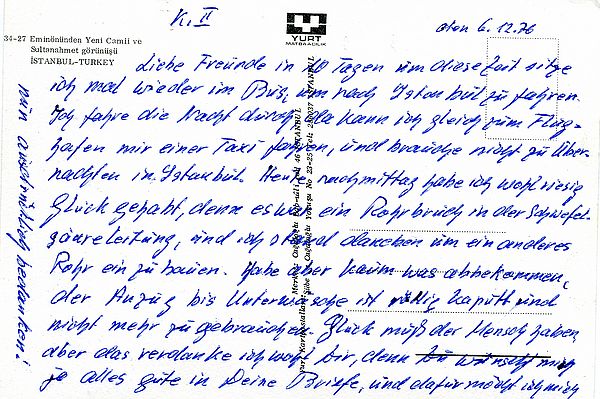 K. II
YURT
MATBAACILIK
den 6.12.76
34-27 Eminönünden Yeni Camii ve
Sultanahmet görünüşü
İSTANBUL-TURKEY
Liebe Freunde in 10 Tagen um diese Zeit sitze
ich mal wieder im Bus, um nach Istanbul zu fahren.
Ich fahre die Nacht durch, da kann ich gleich zum Flug-
hafen mir einer Taxi fahren, und brauche nicht zu über-
nachten in Istanbul. Heute nachmittag habe ich wohl riesig
Glück gehabt, denn es war ein Rohrbruch in der Schwefel-
säureleitung, und ich stand daneben um ein anderes
Rohr ein zu bauen. Habe aber kaum was abbekommen,
der Anzug bis Unterwäsche ist völlig kaputt und
nicht mehr zu gebrauchen. Glück muß der Mensch haben,
aber das verdanke ich wohl Dir, denn Du wünscht mich
ja alles gute in Deine Briefe, und dafür möcht ich mich
nun ausdrücklich bedanken!